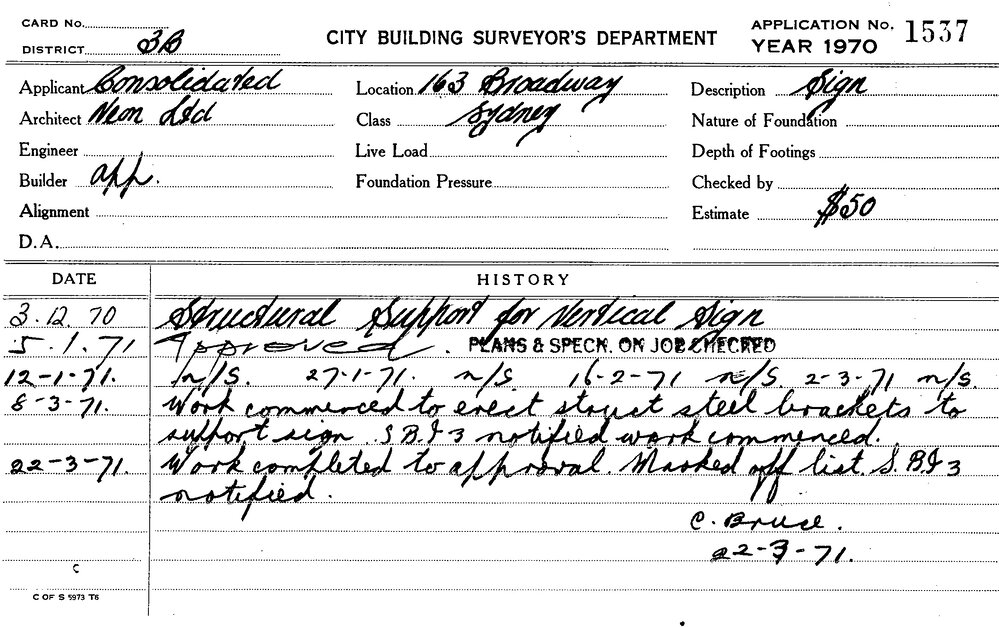 CARD No.
DISTRICT 3B
CITY BUILDING SURVEYOR'S DEPARTMENT
APPLICATION No. 1537
YEAR 1970
Applicant Consolidated
Location 163 Broadway
Description Sign
Architect Neon Ltd
Class Sydney
Nature of Foundation
Engineer
Live Load
Depth of Footings
Builder app.
Foundation Pressure
Checked by
Alignment
Estimate $50
D.A.
DATE HISTORY
3.12.70 Structural Support for Vertical Sign
5.1.71 Approved. PLANS & SPECN. ON JOB CHECKED
12-1-71. n/S. 27-1-71. n/S. 16-2-71 n/S 2-3-71 n/S.
8-3-71. Work commenced to erect steel brackets to
support sign. S.B.I 3 notified work commenced.
22-3-71. Work completed to approval. Marked off list. S.B.I 3
notified.
C. Bruce.
22-3-71.
C
C OF S 5973 T6